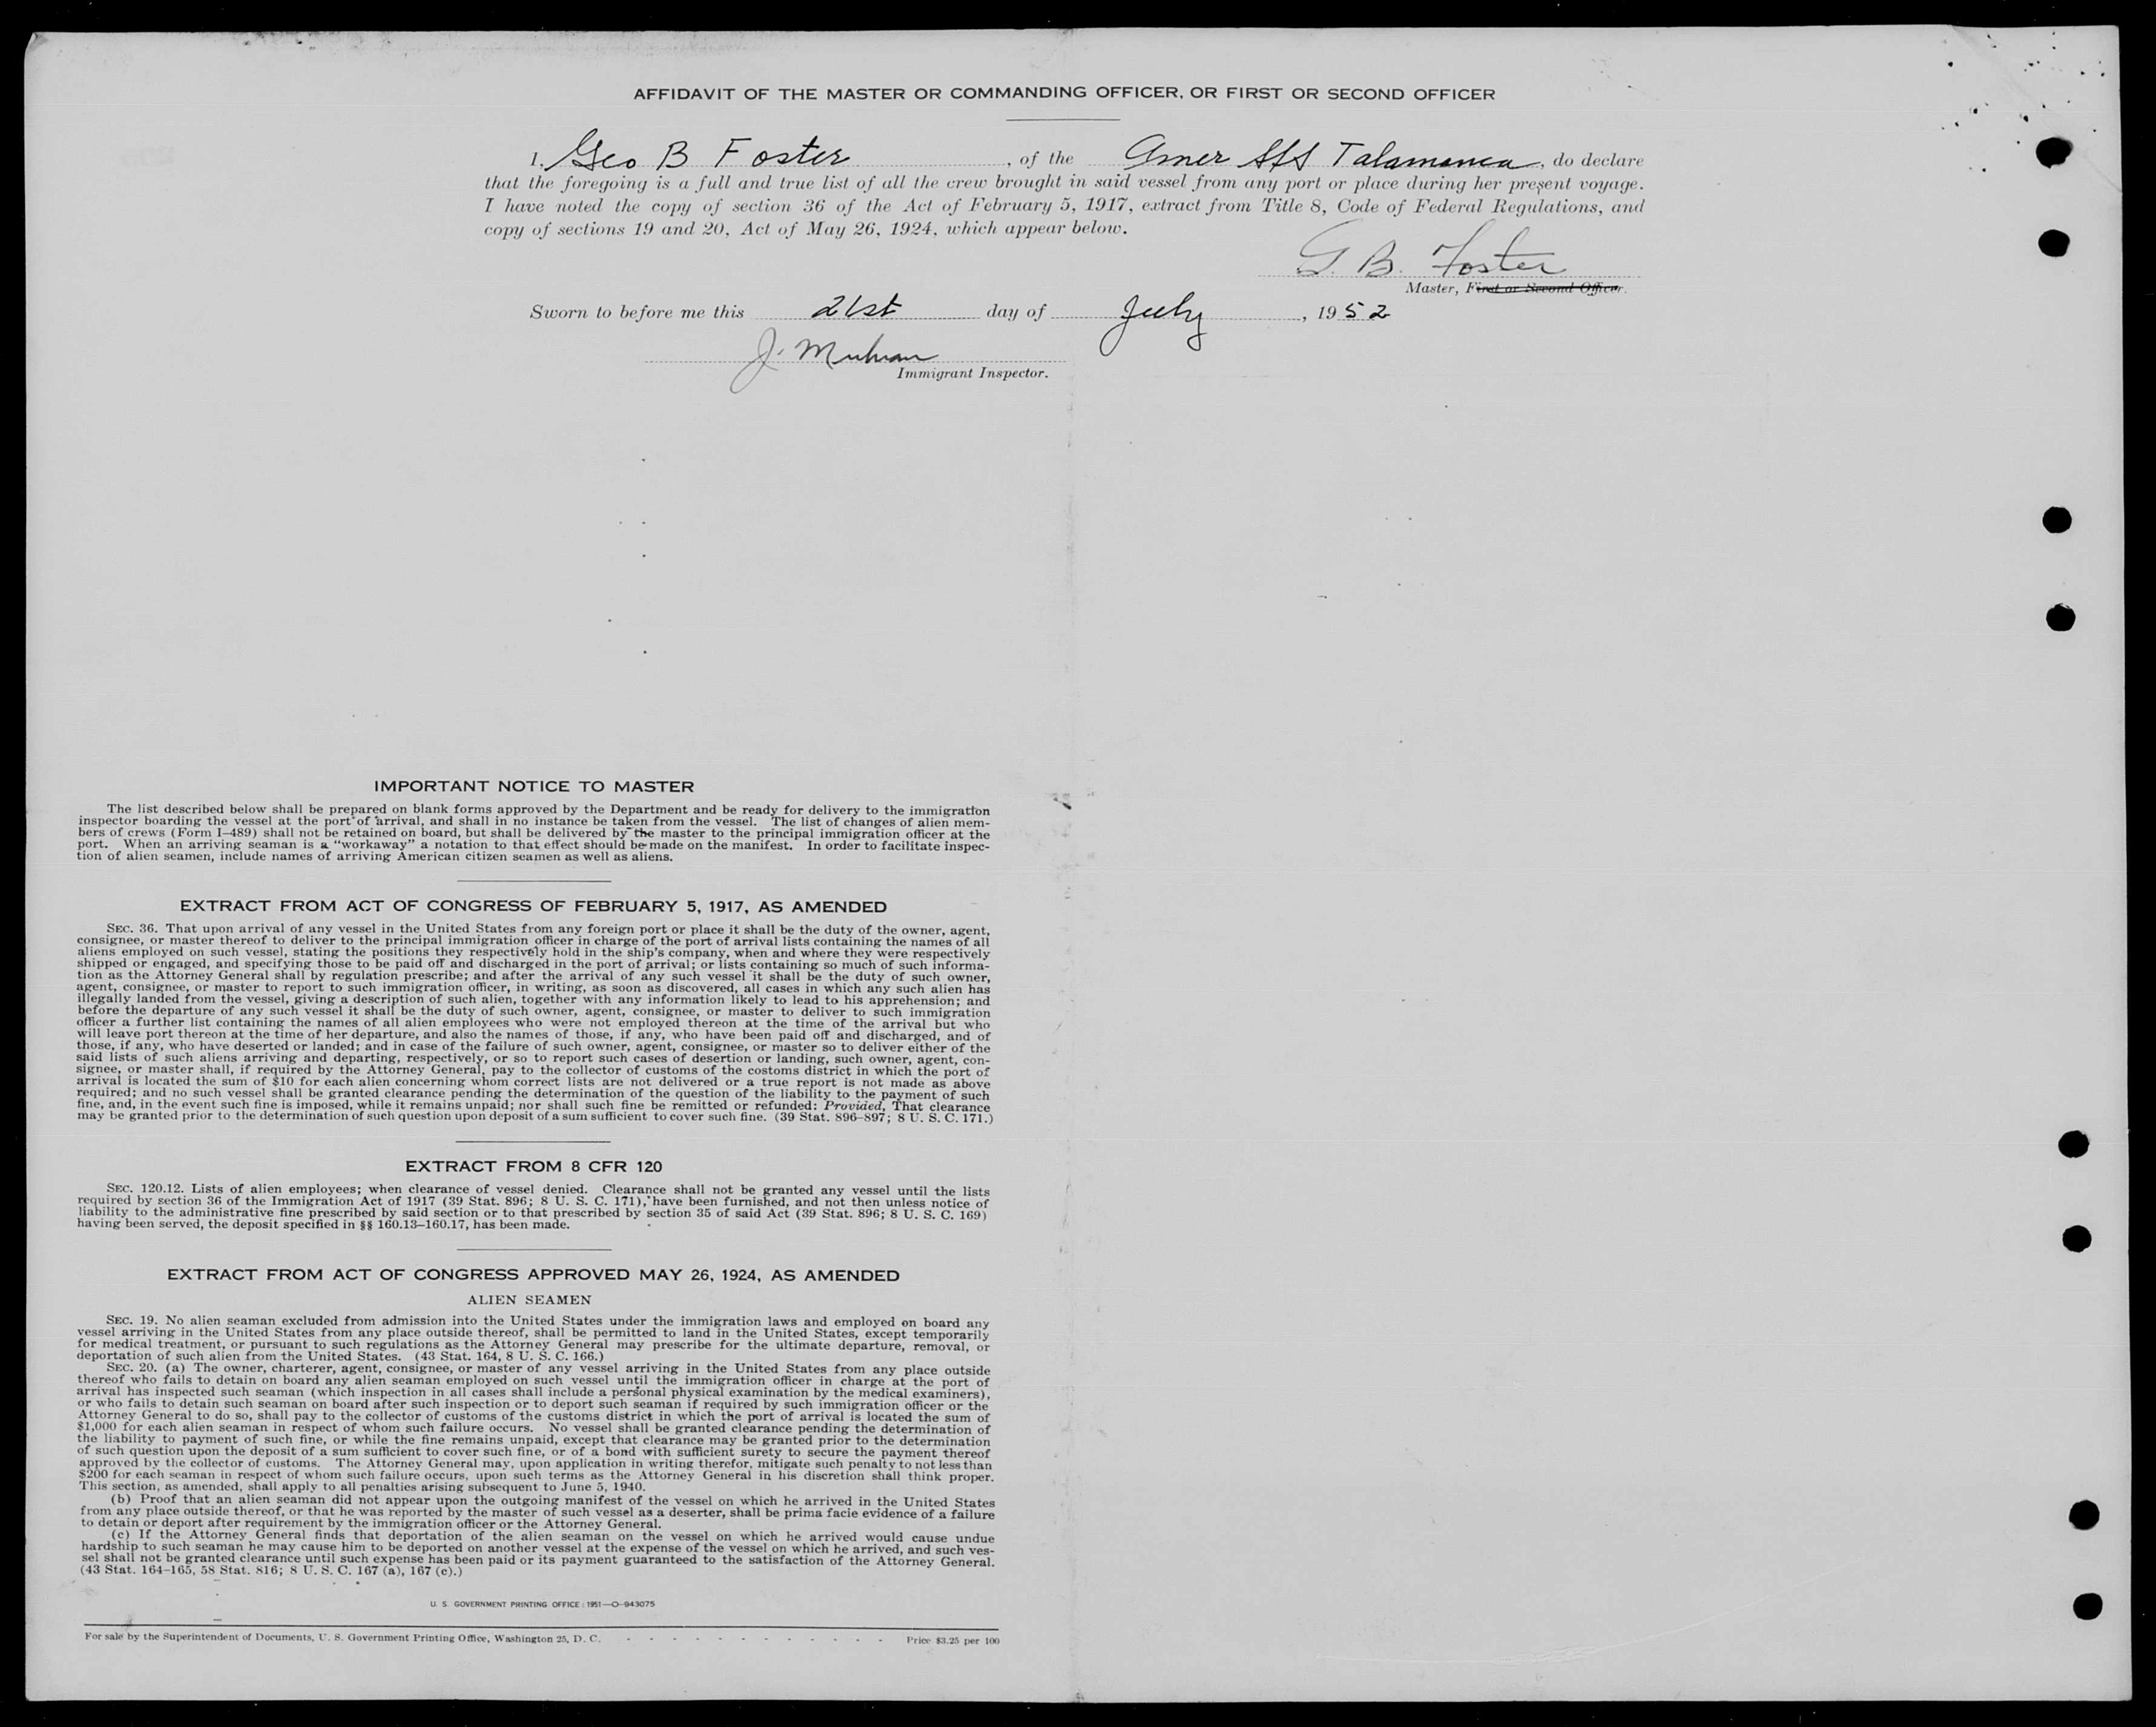 AFFIDAVIT OF THE MASTER OR COMMANDING OFFICER, OR FIRST OR SECOND OFFICER
I, Geo B Foster, of the Amer S/S Talamanca, do declare
that the foregoing is a full and true list of all the crew brought in said vessel from any port or place during her present voyage.
I have noted the copy of section 36 of the Act of February 5, 1917, extract from Title 8, Code of Federal Regulations, and
copy of sections 19 and 20, Act of May 26, 1924, which appear below.
G. B. Foster
Master, First or Second Officer.
Sworn to before me this 21st day of July, 1952
J.
Immigrant Inspector.
IMPORTANT NOTICE TO MASTER
The list described below shall be prepared on blank forms approved by the Department and be ready for delivery to the immigration
inspector boarding the vessel at the port of arrival, and shall in no instance be taken from the vessel. The list of changes of alien mem-
bers of crews (Form I–489) shall not be retained on board, but shall be delivered by the master to the principal immigration officer at the
port. When an arriving seaman is a “workaway” a notation to that effect should be made on the manifest. In order to facilitate inspec-
tion of alien seamen, include names of arriving American citizen seamen as well as aliens.
EXTRACT FROM ACT OF CONGRESS OF FEBRUARY 5, 1917, AS AMENDED
SEC. 36. That upon arrival of any vessel in the United States from any foreign port or place it shall be the duty of the owner, agent,
consignee, or master thereof to deliver to the principal immigration officer in charge of the port of arrival lists containing the names of all
aliens employed on such vessel, stating the positions they respectively hold in the ship's company, when and where they were respectively
shipped or engaged, and specifying those to be paid off and discharged in the port of arrival; or lists containing so much of such informa-
tion as the Attorney General shall by regulation prescribe; and after the arrival of any such vessel it shall be the duty of such owner,
agent, consignee, or master to report to such immigration officer, in writing, as soon as discovered, all cases in which any such alien has
illegally landed from the vessel, giving a description of such alien, together with any information likely to lead to his apprehension; and
before the departure of any such vessel it shall be the duty of such owner, agent, consignee, or master to deliver to such immigration
officer a further list containing the names of all alien employees who were not employed thereon at the time of the arrival but who
will leave port thereon at the time of her departure, and also the names of those, if any, who have been paid off and discharged, and of
those, if any, who have deserted or landed; and in case of the failure of such owner, agent, consignee, or master so to deliver either of the
said lists of such aliens arriving and departing, respectively, or so to report such cases of desertion or landing, such owner, agent, con-
signee, or master shall, if required by the Attorney General, pay to the collector of customs of the costoms district in which the port of
arrival is located the sum of $10 for each alien concerning whom correct lists are not delivered or a true report is not made as above
required; and no such vessel shall be granted clearance pending the determination of the question of the liability to the payment of such
fine, and, in the event such fine is imposed, while it remains unpaid; nor shall such fine be remitted or refunded: Provided, That clearance
may be granted prior to the determination of such question upon deposit of a sum sufficient to cover such fine. (39 Stat. 896–897; 8 U. S. C. 171.)
EXTRACT FROM 8 CFR 120
SEC. 120.12. Lists of alien employees; when clearance of vessel denied. Clearance shall not be granted any vessel until the lists
required by section 36 of the Immigration Act of 1917 (39 Stat. 896; 8 U. S. C. 171), have been furnished, and not then unless notice of
liability to the administrative fine prescribed by said section or to that prescribed by section 35 of said Act (39 Stat. 896; 8 U. S. C. 169)
having been served, the deposit specified in §§ 160.13–160.17, has been made.
EXTRACT FROM ACT OF CONGRESS APPROVED MAY 26, 1924, AS AMENDED
ALIEN SEAMEN
SEC. 19. No alien seaman excluded from admission into the United States under the immigration laws and employed on board any
vessel arriving in the United States from any place outside thereof, shall be permitted to land in the United States, except temporarily
for medical treatment, or pursuant to such regulations as the Attorney General may prescribe for the ultimate departure, removal, or
deportation of such alien from the United States. (43 Stat. 164, 8 U. S. C. 166.)
SEC. 20. (a) The owner, charterer, agent, consignee, or master of any vessel arriving in the United States from any place outside
thereof who fails to detain on board any alien seaman employed on such vessel until the immigration officer in charge at the port of
arrival has inspected such seaman (which inspection in all cases shall include a personal physical examination by the medical examiners),
or who fails to detain such seaman on board after such inspection or to deport such seaman if required by such immigration officer or the
Attorney General to do so, shall pay to the collector of customs of the customs district in which the port of arrival is located the sum of
$1,000 for each alien seaman in respect of whom such failure occurs. No vessel shall be granted clearance pending the determination of
the liability to payment of such fine, or while the fine remains unpaid, except that clearance may be granted prior to the determination
of such question upon the deposit of a sum sufficient to cover such fine, or of a bond with sufficient surety to secure the payment thereof
approved by the collector of customs. The Attorney General may, upon application in writing therefor, mitigate such penalty to not less than
$200 for each seaman in respect of whom such failure occurs, upon such terms as the Attorney General in his discretion shall think proper.
This section, as amended, shall apply to all penalties arising subsequent to June 5, 1940.
(b) Proof that an alien seaman did not appear upon the outgoing manifest of the vessel on which he arrived in the United States
from any place outside thereof, or that he was reported by the master of such vessel as a deserter, shall be prima facie evidence of a failure
to detain or deport after requirement by the immigration officer or the Attorney General.
(c) If the Attorney General finds that deportation of the alien seaman on the vessel on which he arrived would cause undue
hardship to such seaman he may cause him to be deported on another vessel at the expense of the vessel on which he arrived, and such ves-
sel shall not be granted clearance until such expense has been paid or its payment guaranteed to the satisfaction of the Attorney General.
(43 Stat. 164–165, 58 Stat. 816; 8 U. S. C. 167 (a), 167 (c).)
U. S. GOVERNMENT PRINTING OFFICE : 1951—O–943075
For sale by the Superintendent of Documents, U. S. Government Printing Office, Washington 25, D. C. - - - - - - - - - - - - Price $3.25 per 100